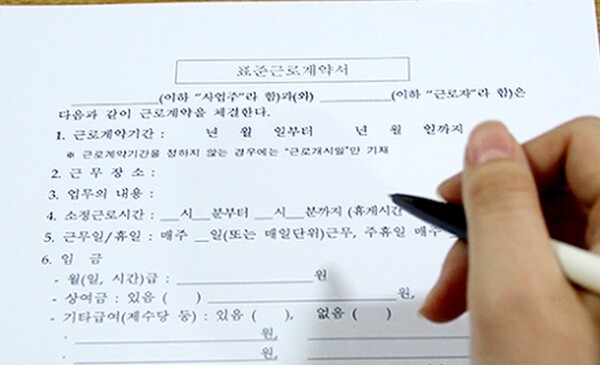 표준근로계약서
__________(이하 "사업주"라 함)과(와) __________(이하 "근로자"라 함)은
다음과 같이 근로계약을 체결한다.
1. 근로계약기간 : 년 월 일부터 년 월 일까지
※ 근로계약기간을 정하지 않는 경우에는 "근로개시일"만 기재
2. 근 무 장 소 :
3. 업무의 내용 :
4. 소정근로시간 : __시__분부터 __시__분까지 (휴게시간
5. 근무일/휴일 : 매주 __일(또는 매일단위)근무, 주휴일 매주
6. 임 금
- 월(일, 시간)급 : ____________________원
- 상여금 : 있음 ( ) ____________________원,
- 기타급여(제수당 등) : 있음 ( ), 없음 ( )
· ____________________원, ____________________
· ____________________원, ____________________